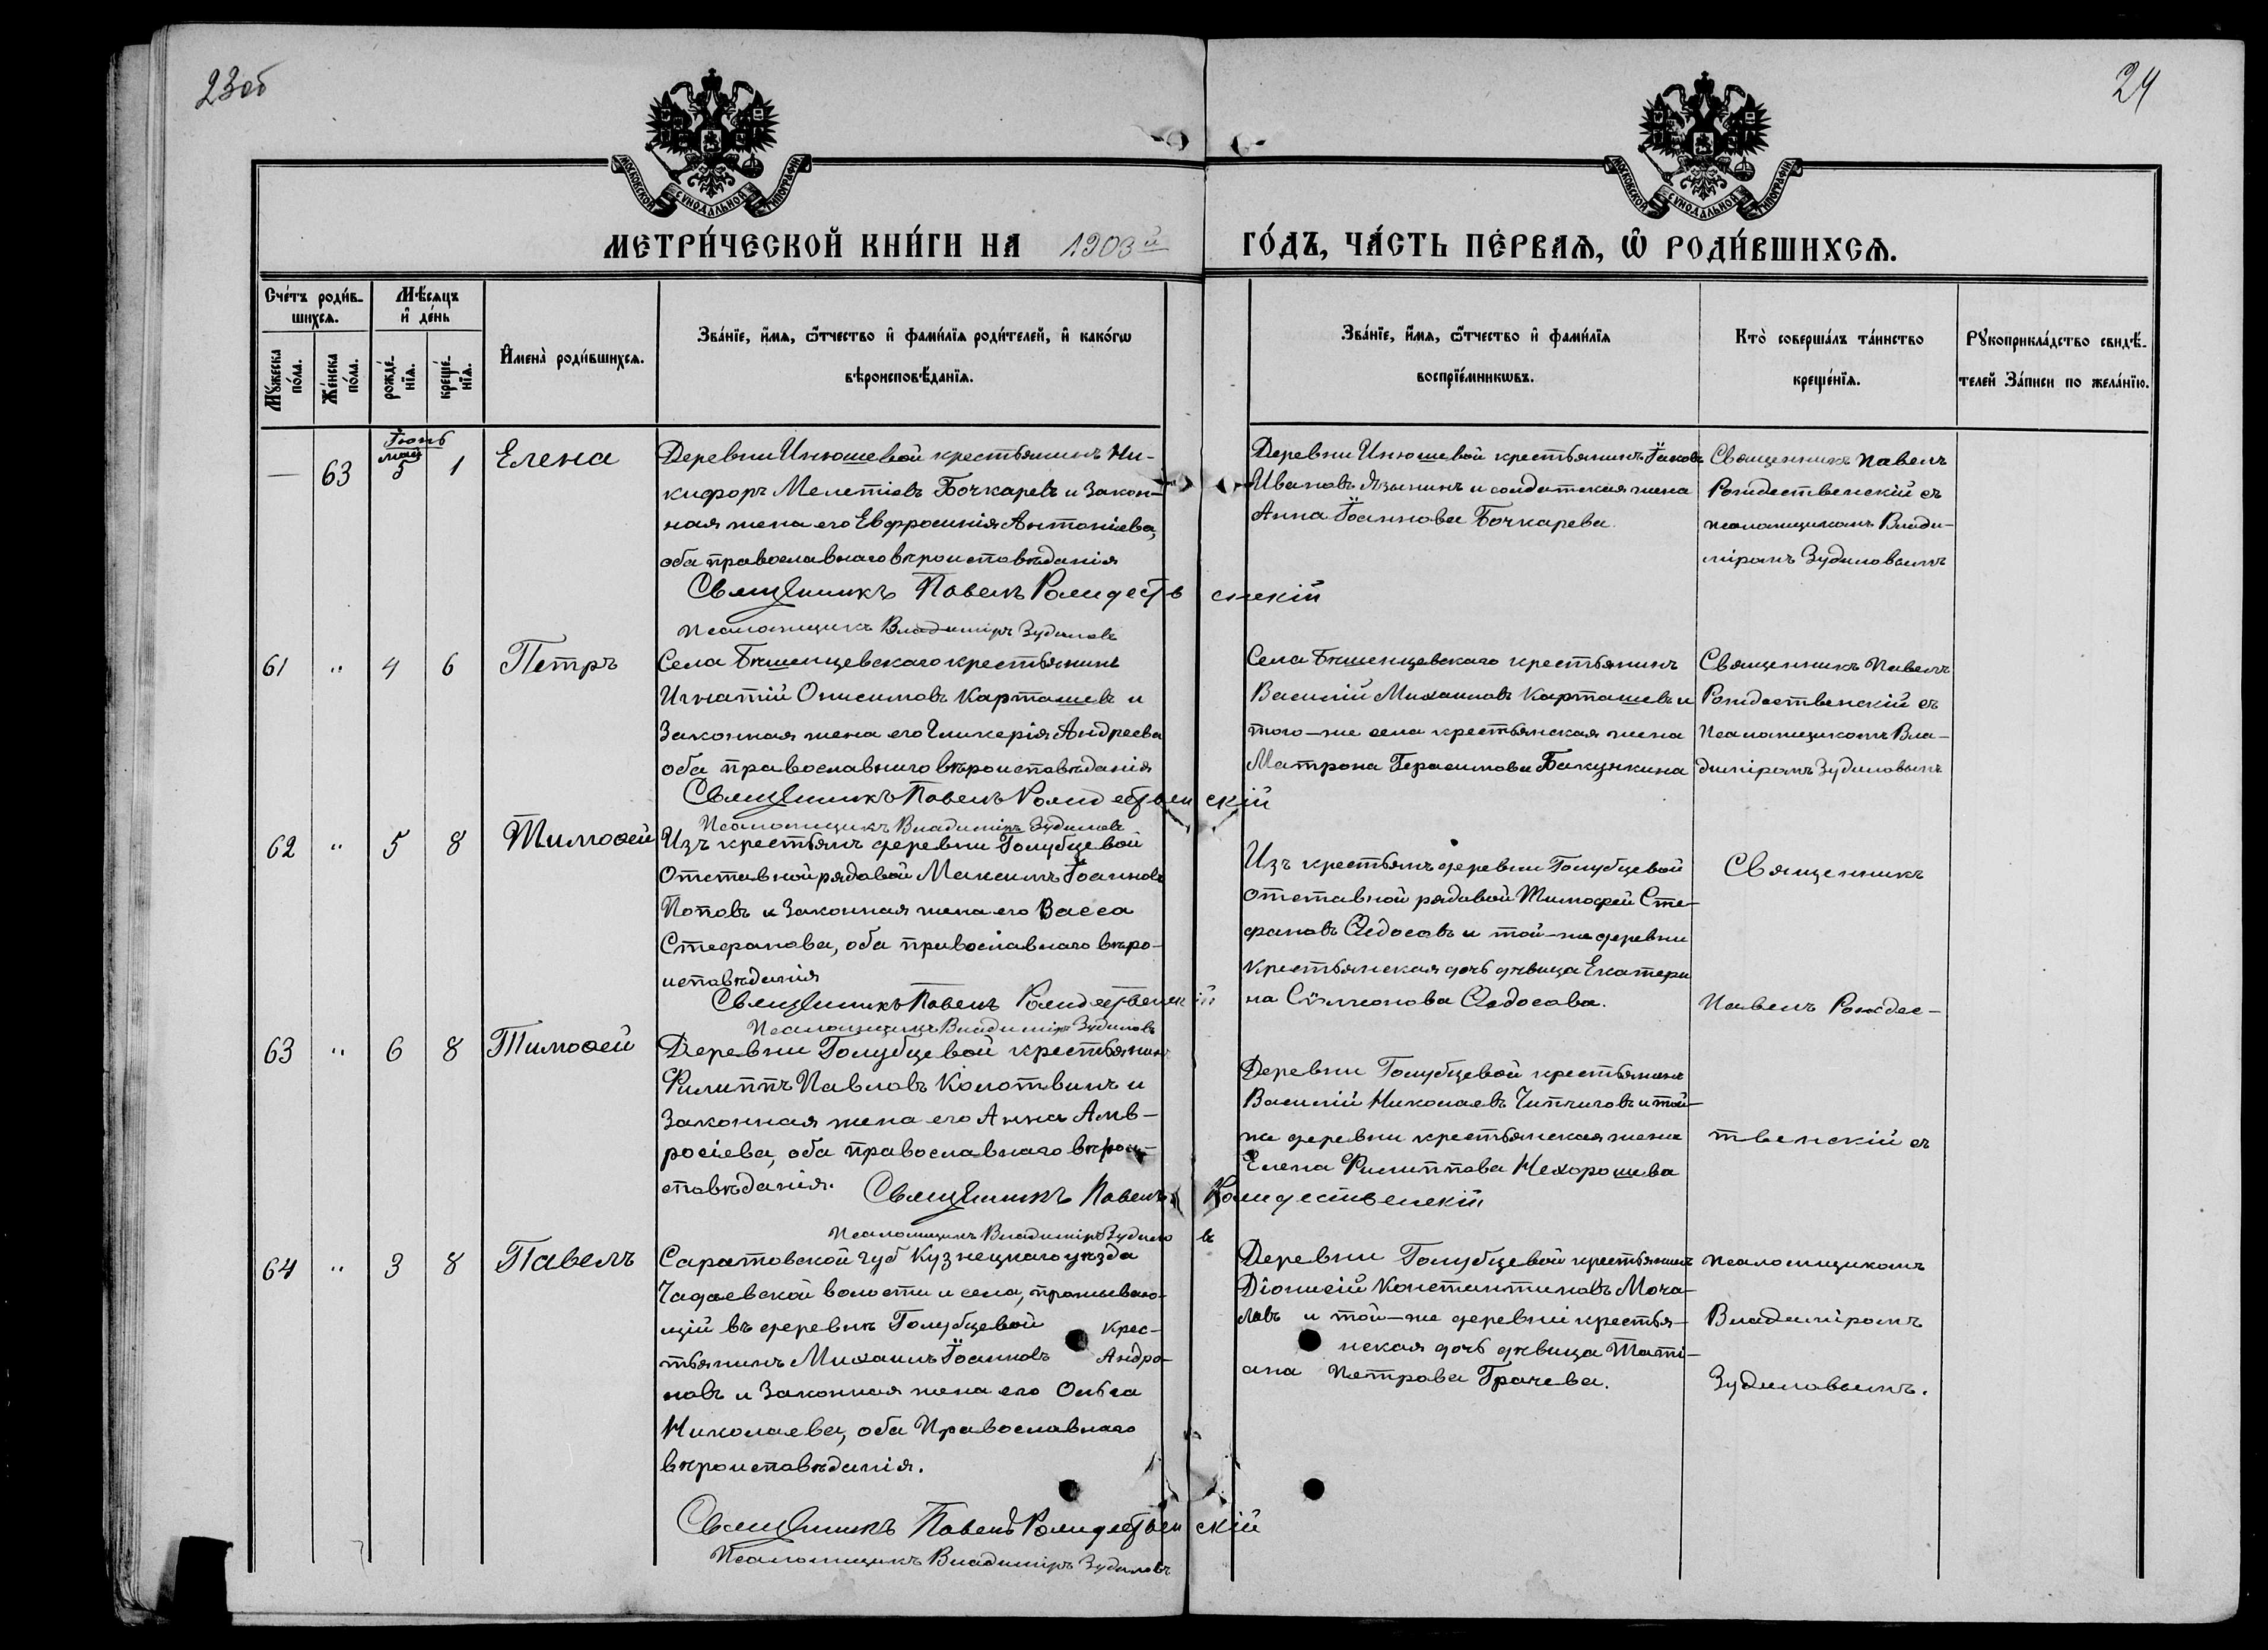 23об
24
МОСКОВСКОЙ СУНОДАЛЬНОЙ ТИПОГРАФІИ
МОСКОВСКОЙ СУНОДАЛЬНОЙ ТИПОГРАФІИ
МЕТРИ́ЧЕСКОЙ КНИ́ГИ НА 1903й ГО́ДЪ, ЧА́СТЬ ПЕ́РВАѦ, Ѿ РОДИ́ВШИХСѦ.
Сче́тъ роди́в-
шихсѧ.
Мꙋ́жеска
по́ла.
Же́нска
по́ла.
Мѣ́сѧцъ
и҆ де́нь
рожде́-
нїѧ.
креще́-
нїѧ.
И҆мена̀ роди́вшихсѧ.
Зва́нїе, и҆́мѧ, ѻ҆́тчество и҆ фами́лїѧ роди́телей, и҆ како́гѡ
вѣроисповѣ́данїѧ.
Зва́нїе, и҆́мѧ, ѻ҆́тчество и҆ фами́лїѧ
воспрїе́мникѡвъ.
Кто̀ соверша́лъ та́инство
креще́нїѧ.
Рꙋкоприкла́дство свидѣ́-
телей За́писи по жела́нїю.
—
63
Іюнь
май
5
1
Елена
Деревни Инюшевой крестьянинъ Ни-
кифоръ Мелетіевъ Бочкаревъ и закон-
ная жена его Евфросинія Антоніева,
оба православнаго вѣроисповѣданія
Священникъ Павелъ Рождественскій
Псаломщикъ Владиміръ Зудиловъ
Деревни Инюшевой крестьянинъ Іаковъ
Ивановъ Язынинъ и солдатская жена
Анна Іоаннова Бочкарева.
Священникъ Павелъ
Рождественскій съ
псаломщикомъ Влади-
міромъ Зудиловымъ
61
"
4
6
Петръ
Села Бѣшенцевскаго крестьянинъ
Игнатій Онисимовъ Карташевъ и
законная жена его Гликерія Андреева
оба православнаго вѣроисповѣданія
Священникъ Павелъ Рождественскій
Псаломщикъ Владиміръ Зудиловъ
Села Бѣшенцевскаго крестьянинъ
Василій Михаиловъ Карташевъ и
того-же села крестьянская жена
Матрона Герасимова Бакункина
Священникъ Павелъ
Рождественскій съ
Псаломщикомъ Вла-
диміромъ Зудиловымъ
62
"
5
8
Тимоѳей
Изъ крестьянъ деревни Голубцевой
Отставной рядовой Максимъ Іоанновъ
Поповъ и законная жена его Васса
Стефанова, оба православнаго вѣро-
исповѣданія
Священникъ Павелъ Рождественскій
Псаломщикъ Владиміръ Зудиловъ
Изъ крестьянъ деревни Голубцевой
отставной рядовой Тимофей Сте-
фановъ Ѳедосовъ и той-же деревни
крестьянская дочь дѣвица Екатери
на Сѵмеонова Ѳедосова.
Священникъ
Павелъ Рождес-
63
"
6
8
Тимоѳей
Деревни Голубцевой крестьянинъ
Филиппъ Павловъ Колотвинъ и
законная жена его Анна Амв-
росіева, оба православнаго вѣрои-
сповѣданія.
Священникъ Павелъ Рождественскій
Псаломщикъ Владиміръ Зудиловъ
Деревни Голубцевой крестьянинъ
Василій Николаевъ Чипчиговъ и той-
же деревни крестьянская жена
Елена Филиппова Нехорошева
твенскій съ
64
"
3
8
Павелъ
Саратовской губ Кузнецкаго уѣзда
Чадаевской волости и села, проживаю-
щій въ деревнѣ Голубцевой Крес-
тьянинъ Михаилъ Іоанновъ Андро-
новъ и законная жена его Ольга
Николаева, оба Православнаго
вѣроисповѣданія.
Священникъ Павелъ Рождественскій
Псаломщикъ Владиміръ Зудиловъ
Деревни Голубцевой крестьянинъ
Діонисій Константиновъ Моча-
ловъ и той-же деревни крестья-
нская дочь дѣвица Таті-
ана Петрова Грачева.
псаломщикомъ
Владиміромъ
Зудиловымъ.